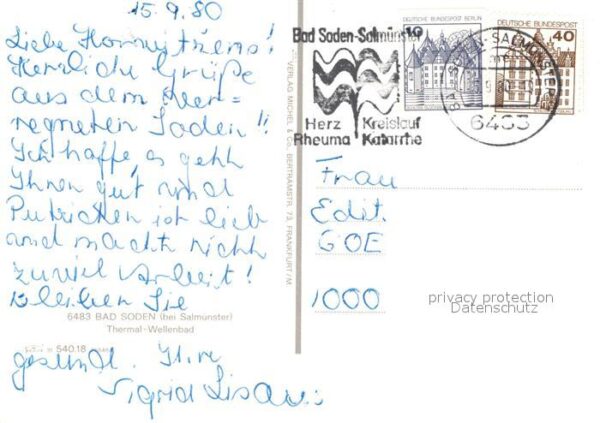 15.9.80
Liebe
Herzliche Grüße
aus dem ver-
regneten Soden!!
Ich hoffe, es geht
Ihnen gut und
ist lieb
und macht nicht
zuviel Arbeit!
Bleiben Sie
6483 BAD SODEN (bei Salmünster)
Thermal-Wellenbad
540.18
gesund. Ihre
Sigrid
VERLAG MICHEL & Co. BERTRAMSTR. 73, FRANKFURT/M
Bad Soden-Salmünster
Herz Kreislauf
Rheuma Katarrhe
DEUTSCHE BUNDESPOST BERLIN
10
DEUTSCHE BUNDESPOST
40
6483
Frau
Edit.
GOE
1000
privacy protection
Datenschutz